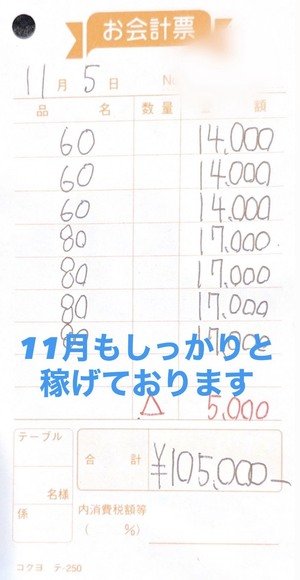 お会計票
11月5日 No
品名 数量 金額
60 14,000
60 14,000
60 14,000
80 17,000
80 17,000
80 17,000
80 17,000
11月もしっかりと
稼げております
△ 5,000
テーブル
名様
係
合計 ¥105,000-
内消費税額等
( %)
コクヨ テ-250